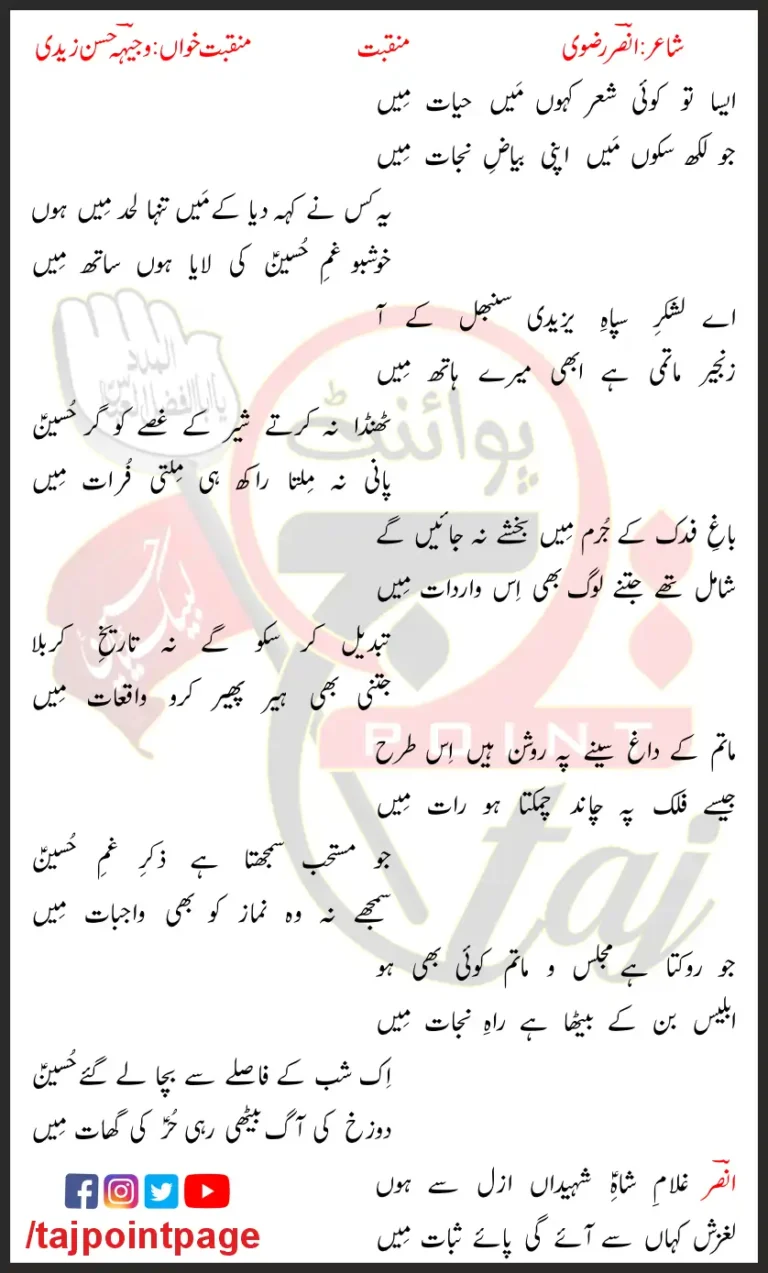 شاعر: انصرؔ رضوی منقبت منقبت خواں: وجیہہ حسن زیدی
ایسا تو کوئی شعر کہوں مَیں حیات مِیں
جو لکھ سکوں مَیں اپنی بیاضِ نجات مِیں
یہ کس نے کہہ دیا کے مَیں تنہا لحد مِیں ہوں
خوشبو غمِ حُسینؑ کی لایا ہوں ساتھ مِیں
اے لشکرِ سپاہِ یزیدی سنبھل کے آ
زنجیر ماتمی ہے ابھی میرے ہاتھ مِیں
ٹھنڈا نہ کرتے شیر کے غصے کو گر حُسینؑ
پانی نہ مِلتا راکھ ہی مِلتی فُرات مِیں
باغِ فدک کے جُرم مِیں بخشے نہ جائیں گے
شامل تھے جتنے لوگ بھی اِس واردات مِیں
تبدیل کر سکو گے نہ تاریخِ کربلا
جتنی بھی ہیر پھیر کرو واقعات مِیں
ماتم کے داغ سینے پہ روشن ہیں اِس طرح
جیسے فلک پہ چاند چمکتا ہو رات مِیں
جو مستحب سمجھتا ہے ذکرِ غمِ حُسینؑ
سمجھے نہ وہ نماز کو بھی واجبات مِیں
جو روکتا ہے مجلس و ماتم کوئی بھی ہو
ابلیس بن کے بیٹھا ہے راہِ نجات مِیں
اِک شب کے فاصلے سے بچا لے گئے حُسینؑ
دوزخ کی آگ بیٹھی رہی حُرؑ کی گھات مِیں
انصرؔ غلامِ شاہِؑ شہیداں ازل سے ہوں
لغزش کہاں سے آئے گی پائے ثبات مِیں
/tajpointpage
المدد
یا ابالفضل العباس
لبیک یا حسین
پوائنٹ
تاج
POINT
taj